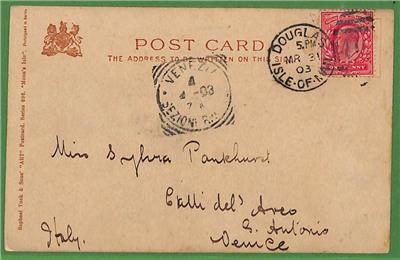 POST CARD
THE ADDRESS TO BE WRITTEN ON THIS SIDE
DOUGLAS
5.PM
MR 31
03
ISLE-OF-MAN
VENEZIA
4
4-03
7 A
SEZIONE
Raphael Tuck & Sons' "ART" Postcard. Series "Mona's Isle".
Miss Sylvia Pankhurst
Calli dels Arco
S. Antonio
Venice
Italy.